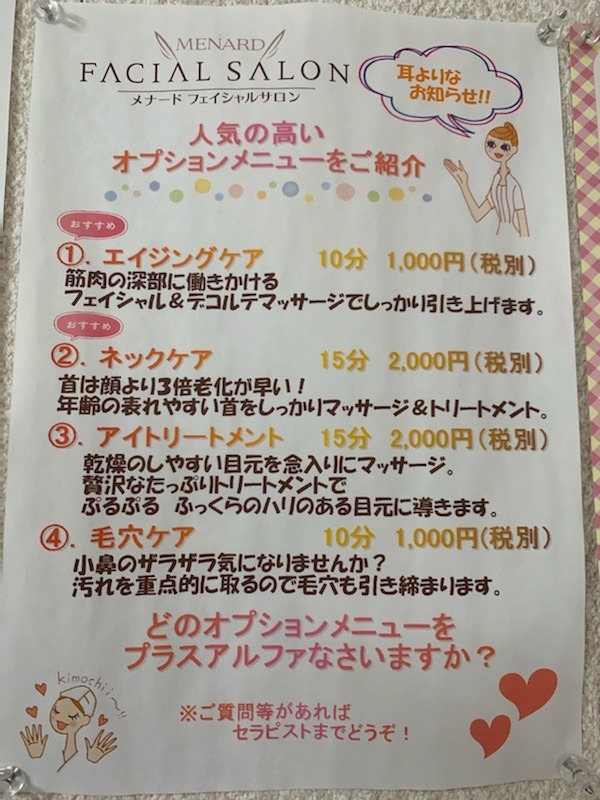 MENARD
FACIAL SALON
メナード フェイシャルサロン
耳よりな
お知らせ!!
人気の高い
オプションメニューをご紹介
おすすめ
①. エイジングケア 10分 1,000円(税別)
筋肉の深部に働きかける
フェイシャル&デコルテマッサージでしっかり引き上げます。
おすすめ
②. ネックケア 15分 2,000円(税別)
首は顔より3倍老化が早い!
年齢の表れやすい首をしっかりマッサージ&トリートメント。
③. アイトリートメント 15分 2,000円(税別)
乾燥のしやすい目元を念入りにマッサージ。
贅沢なたっぷりトリートメントで
ぷるぷる ふっくらのハリのある目元に導きます。
④. 毛穴ケア 10分 1,000円(税別)
小鼻のザラザラ気になりませんか?
汚れを重点的に取るので毛穴も引き締まります。
どのオプションメニューを
プラスアルファなさいますか?
kimochii~!!
※ご質問等があれば
セラピストまでどうぞ!